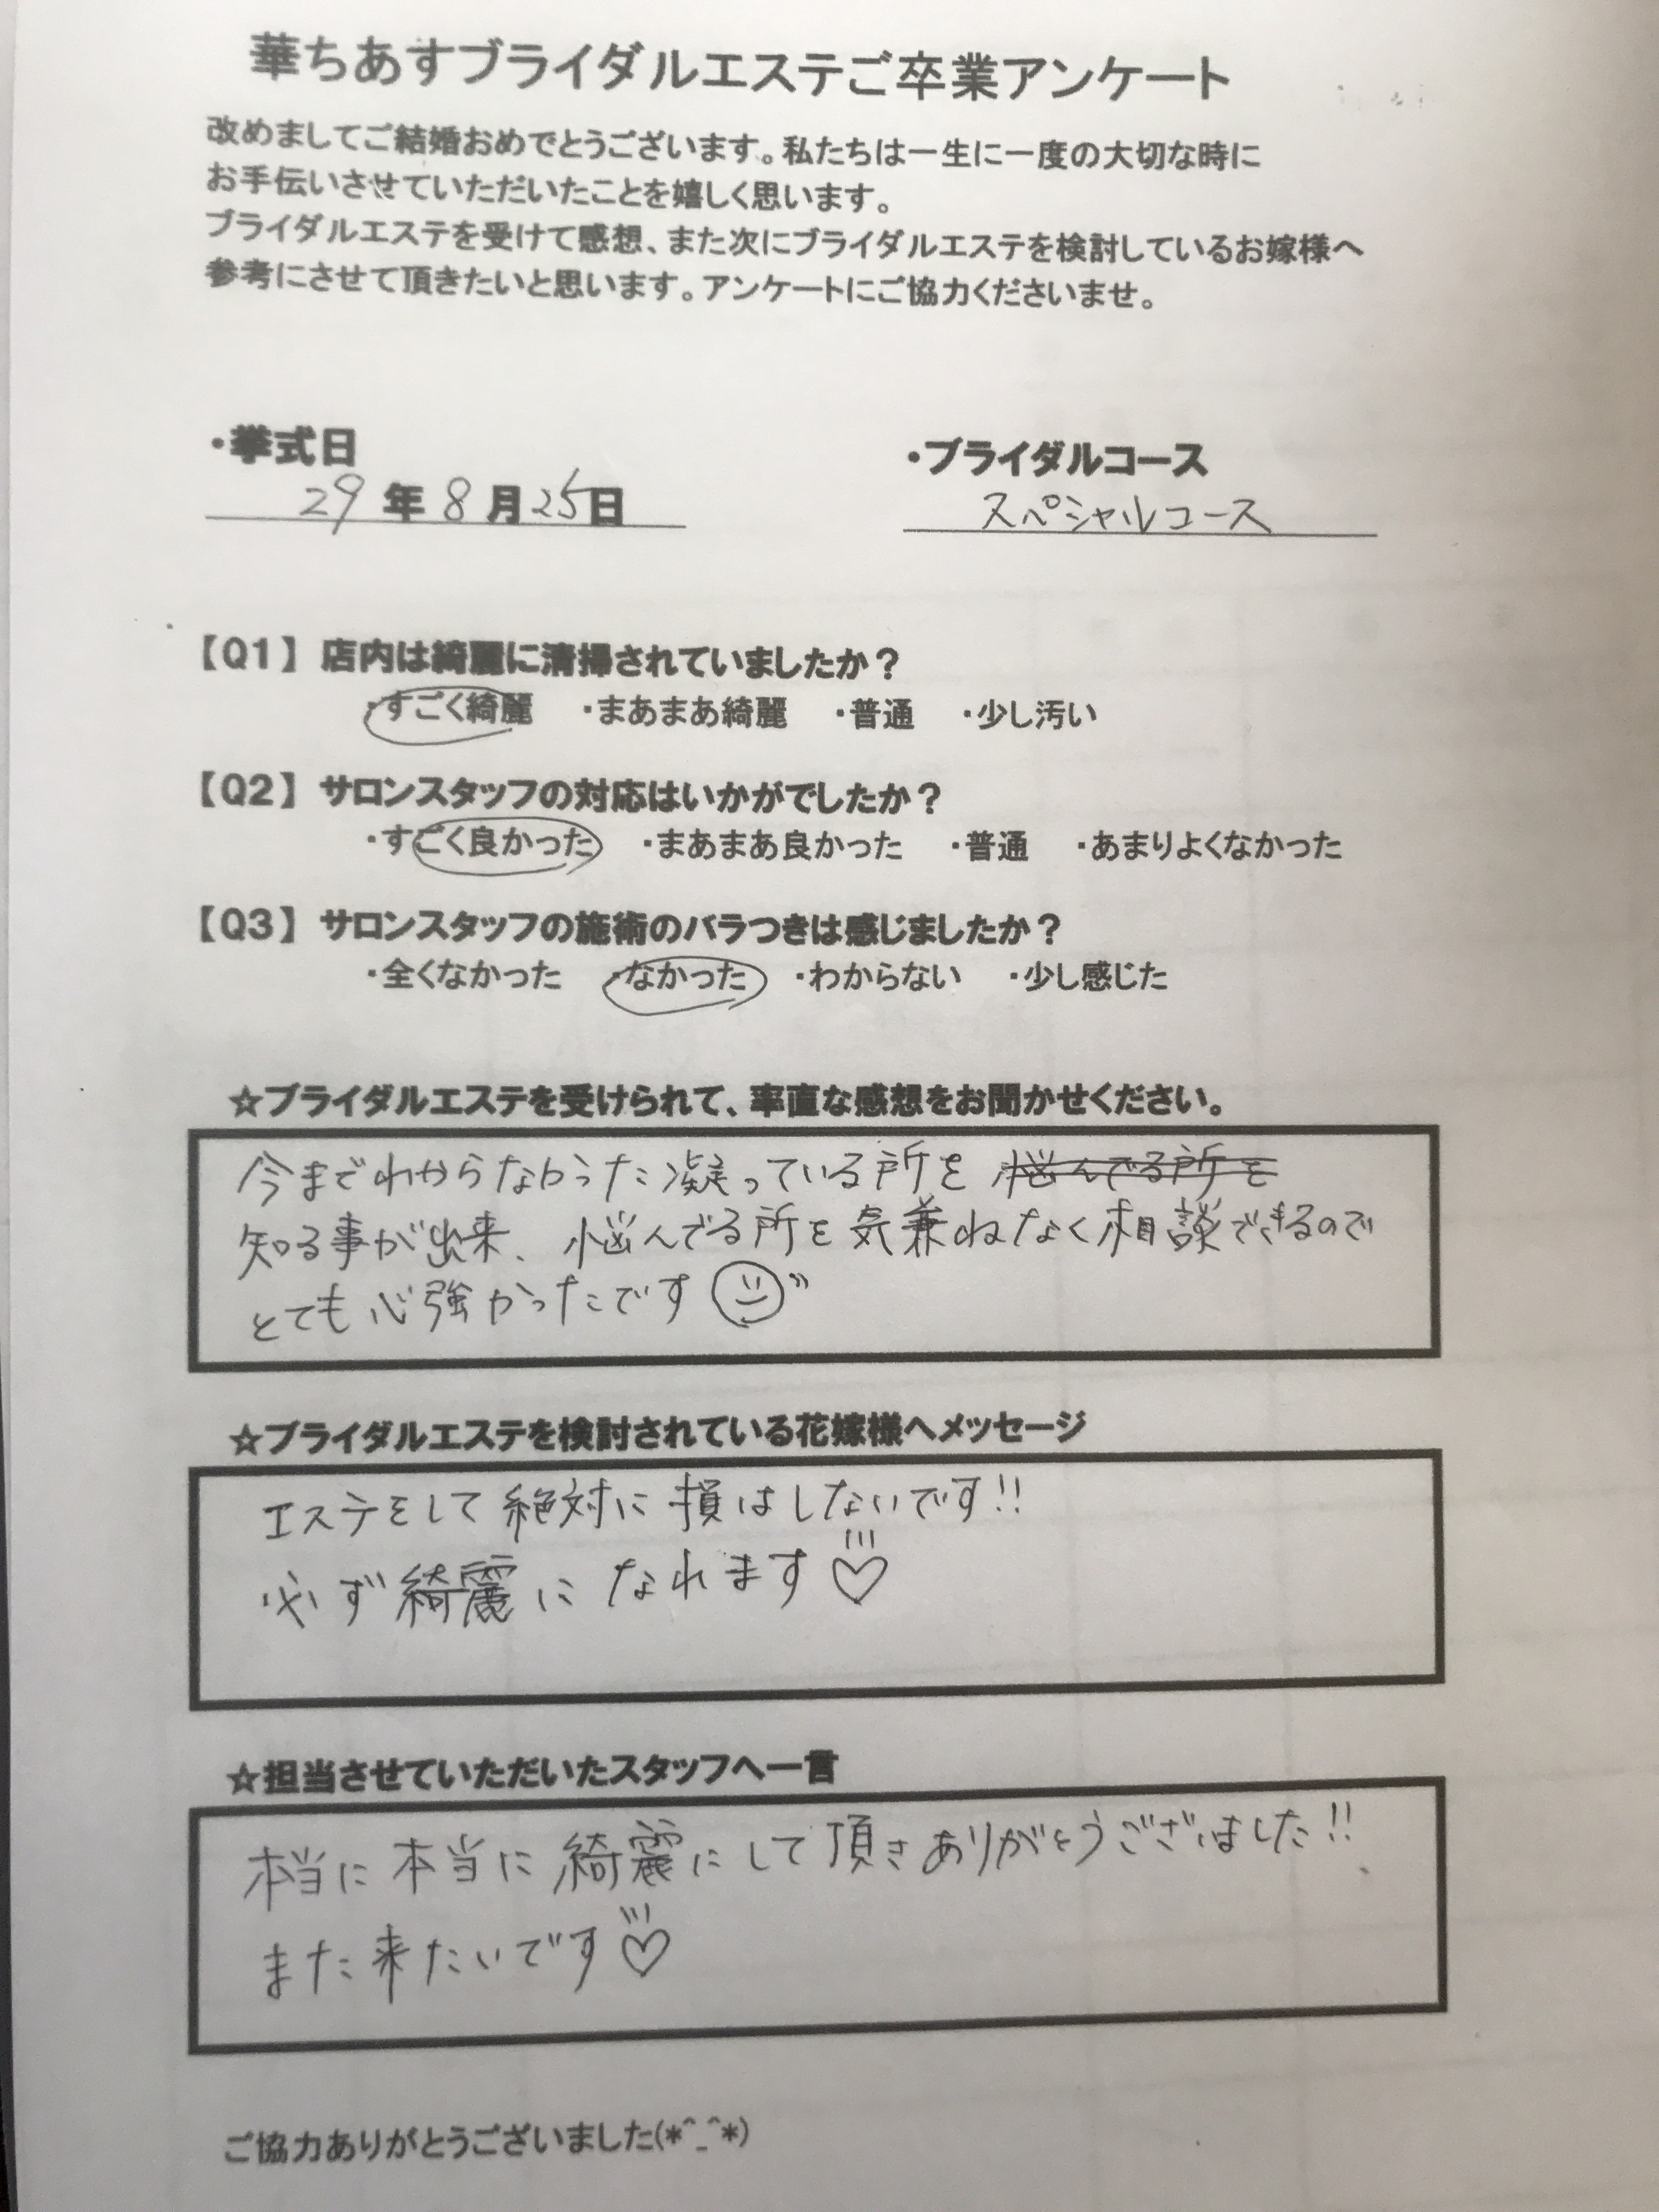 華ちあすブライダルエステご卒業アンケート
改めましてご結婚おめでとうございます。私たちは一生に一度の大切な時に
お手伝いさせていただいたことを嬉しく思います。
ブライダルエステを受けて感想、また次にブライダルエステを検討しているお嫁様へ
参考にさせて頂きたいと思います。アンケートにご協力くださいませ。
・挙式日
29年8月25日
・ブライダルコース
スペシャルコース
【Q1】店内は綺麗に清掃されていましたか？
・すごく綺麗 ・まあまあ綺麗 ・普通 ・少し汚い
【Q2】サロンスタッフの対応はいかがでしたか？
・すごく良かった ・まあまあ良かった ・普通 ・あまりよくなかった
【Q3】サロンスタッフの施術のバラつきは感じましたか？
・全くなかった ・なかった ・わからない ・少し感じた
☆ブライダルエステを受けられて、率直な感想をお聞かせください。
今までわからなかった凝っている所を 悩んでる所を
知る事が出来、悩んでる所を気兼ねなく相談できるので
とても心強かったです
☆ブライダルエステを検討されている花嫁様へメッセージ
エステをして絶対に損はしないです!!
必ず綺麗になれます♡
☆担当させていただいたスタッフへ一言
本当に本当に綺麗にして頂きありがとうございました!!
また来たいです♡
ご協力ありがとうございました(*^_^*)